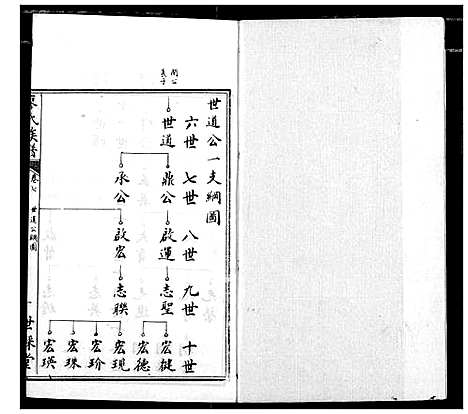 世道公一支綱圖
六世 七世 八世 九世 十世
閏公
長子
世道
鼎公 啟運 志聖 宏健
宏德
承公 啟宏 志聯 宏現
宏玠
宏珠
宏瑛
氏族譜
卷七 世道公綱圖
世綵堂